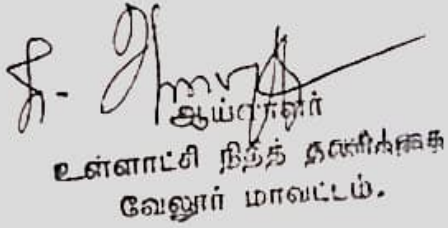 ஆய்வாளர்
உள்ளாட்சி நிதித் தணிக்கை
வேலூர் மாவட்டம்.